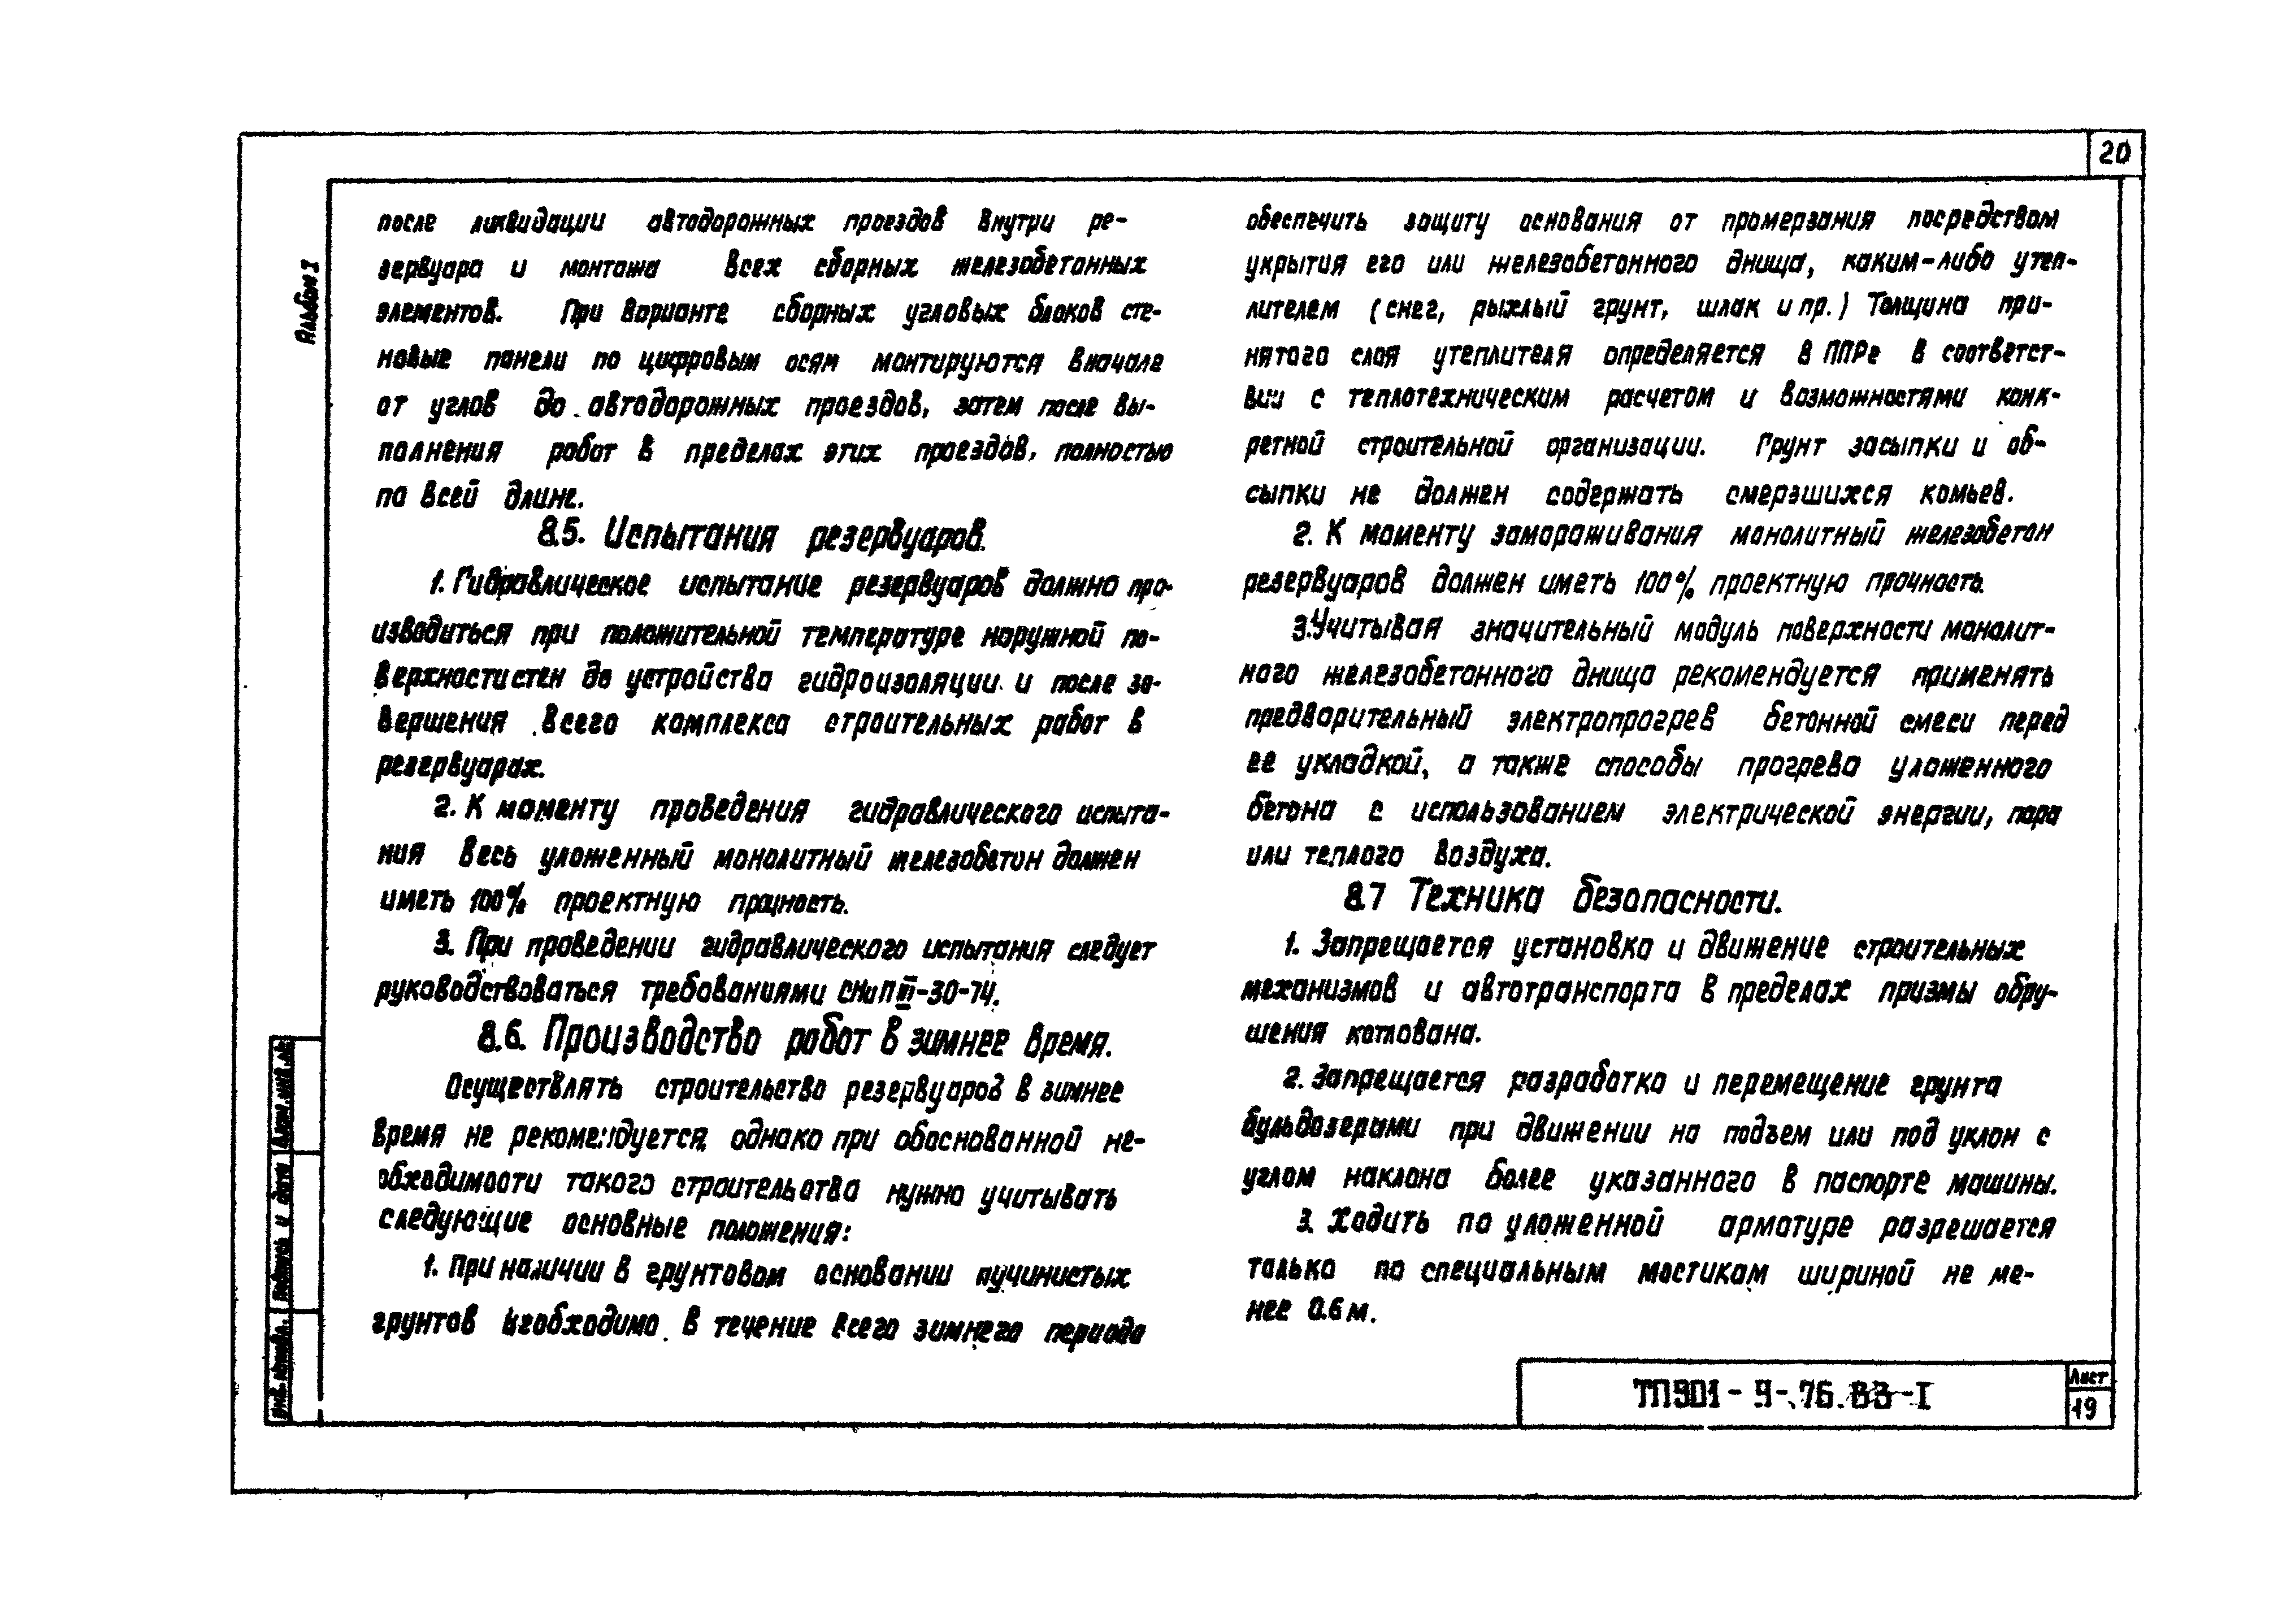 20
Альбом I
после ликвидации автодорожных проездов внутри ре-
зервуара и монтажа всех сборных железобетонных
элементов. При варианте сборных угловых блоков сте-
новые панели по цифровым осям монтируются вначале
от углов до автодорожных проездов, затем после вы-
полнения работ в пределах этих проездов, полностью
по всей длине.
8.5. Испытания резервуаров.
1. Гидравлическое испытание резервуаров должно про-
изводиться при положительной температуре наружной по-
верхности стен до устройства гидроизоляции и после за-
вершения всего комплекса строительных работ в
резервуарах.
2. К моменту проведения гидравлического испыта-
ния весь уложенный монолитный железобетон должен
иметь 100% проектную прочность.
3. При проведении гидравлического испытания следует
руководствоваться требованиями СНиП III-30-74.
8.6. Производство работ в зимнее время.
Осуществлять строительство резервуаров в зимнее
время не рекомендуется, однако при обоснованной не-
обходимости такого строительства нужно учитывать
следующие основные положения:
1. При наличии в грунтовом основании пучинистых
грунтов необходимо в течение всего зимнего периода
обеспечить защиту основания от промерзания посредством
укрытия его или железобетонного днища, каким-либо утеп-
лителем (снег, рыхлый грунт, шлак и пр.) Толщина при-
нятого слоя утеплителя определяется в ППРе в соответст-
вии с теплотехническим расчетом и возможностями конк-
ретной строительной организации. Грунт засыпки и об-
сыпки не должен содержать смерзшихся комьев.
2. К моменту замораживания монолитный железобетон
резервуаров должен иметь 100% проектную прочность.
3. Учитывая значительный модуль поверхности монолит-
ного железобетонного днища рекомендуется применять
предварительный электропрогрев бетонной смеси перед
ее укладкой, а также способы прогрева уложенного
бетона с использованием электрической энергии, пара
или теплого воздуха.
8.7 Техника безопасности.
1. Запрещается установка и движение строительных
механизмов и автотранспорта в пределах призмы обру-
шения котлована.
2. Запрещается разработка и перемещение грунта
бульдозерами при движении на подъем или под уклон с
углом наклона более указанного в паспорте машины.
3. Ходить по уложенной арматуре разрешается
только по специальным мостикам шириной не ме-
нее 0.6 м.
Взам. инв. №
Подпись и дата
Инв. № подл.
ТП 901-9-76.83-I
Лист
19